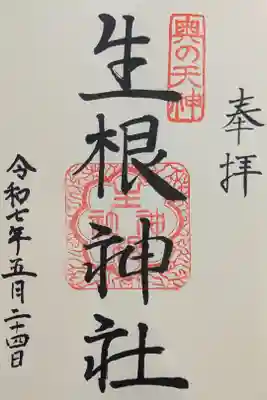 奉拝
奥の天神
生根神社
令和七年五月二十四日